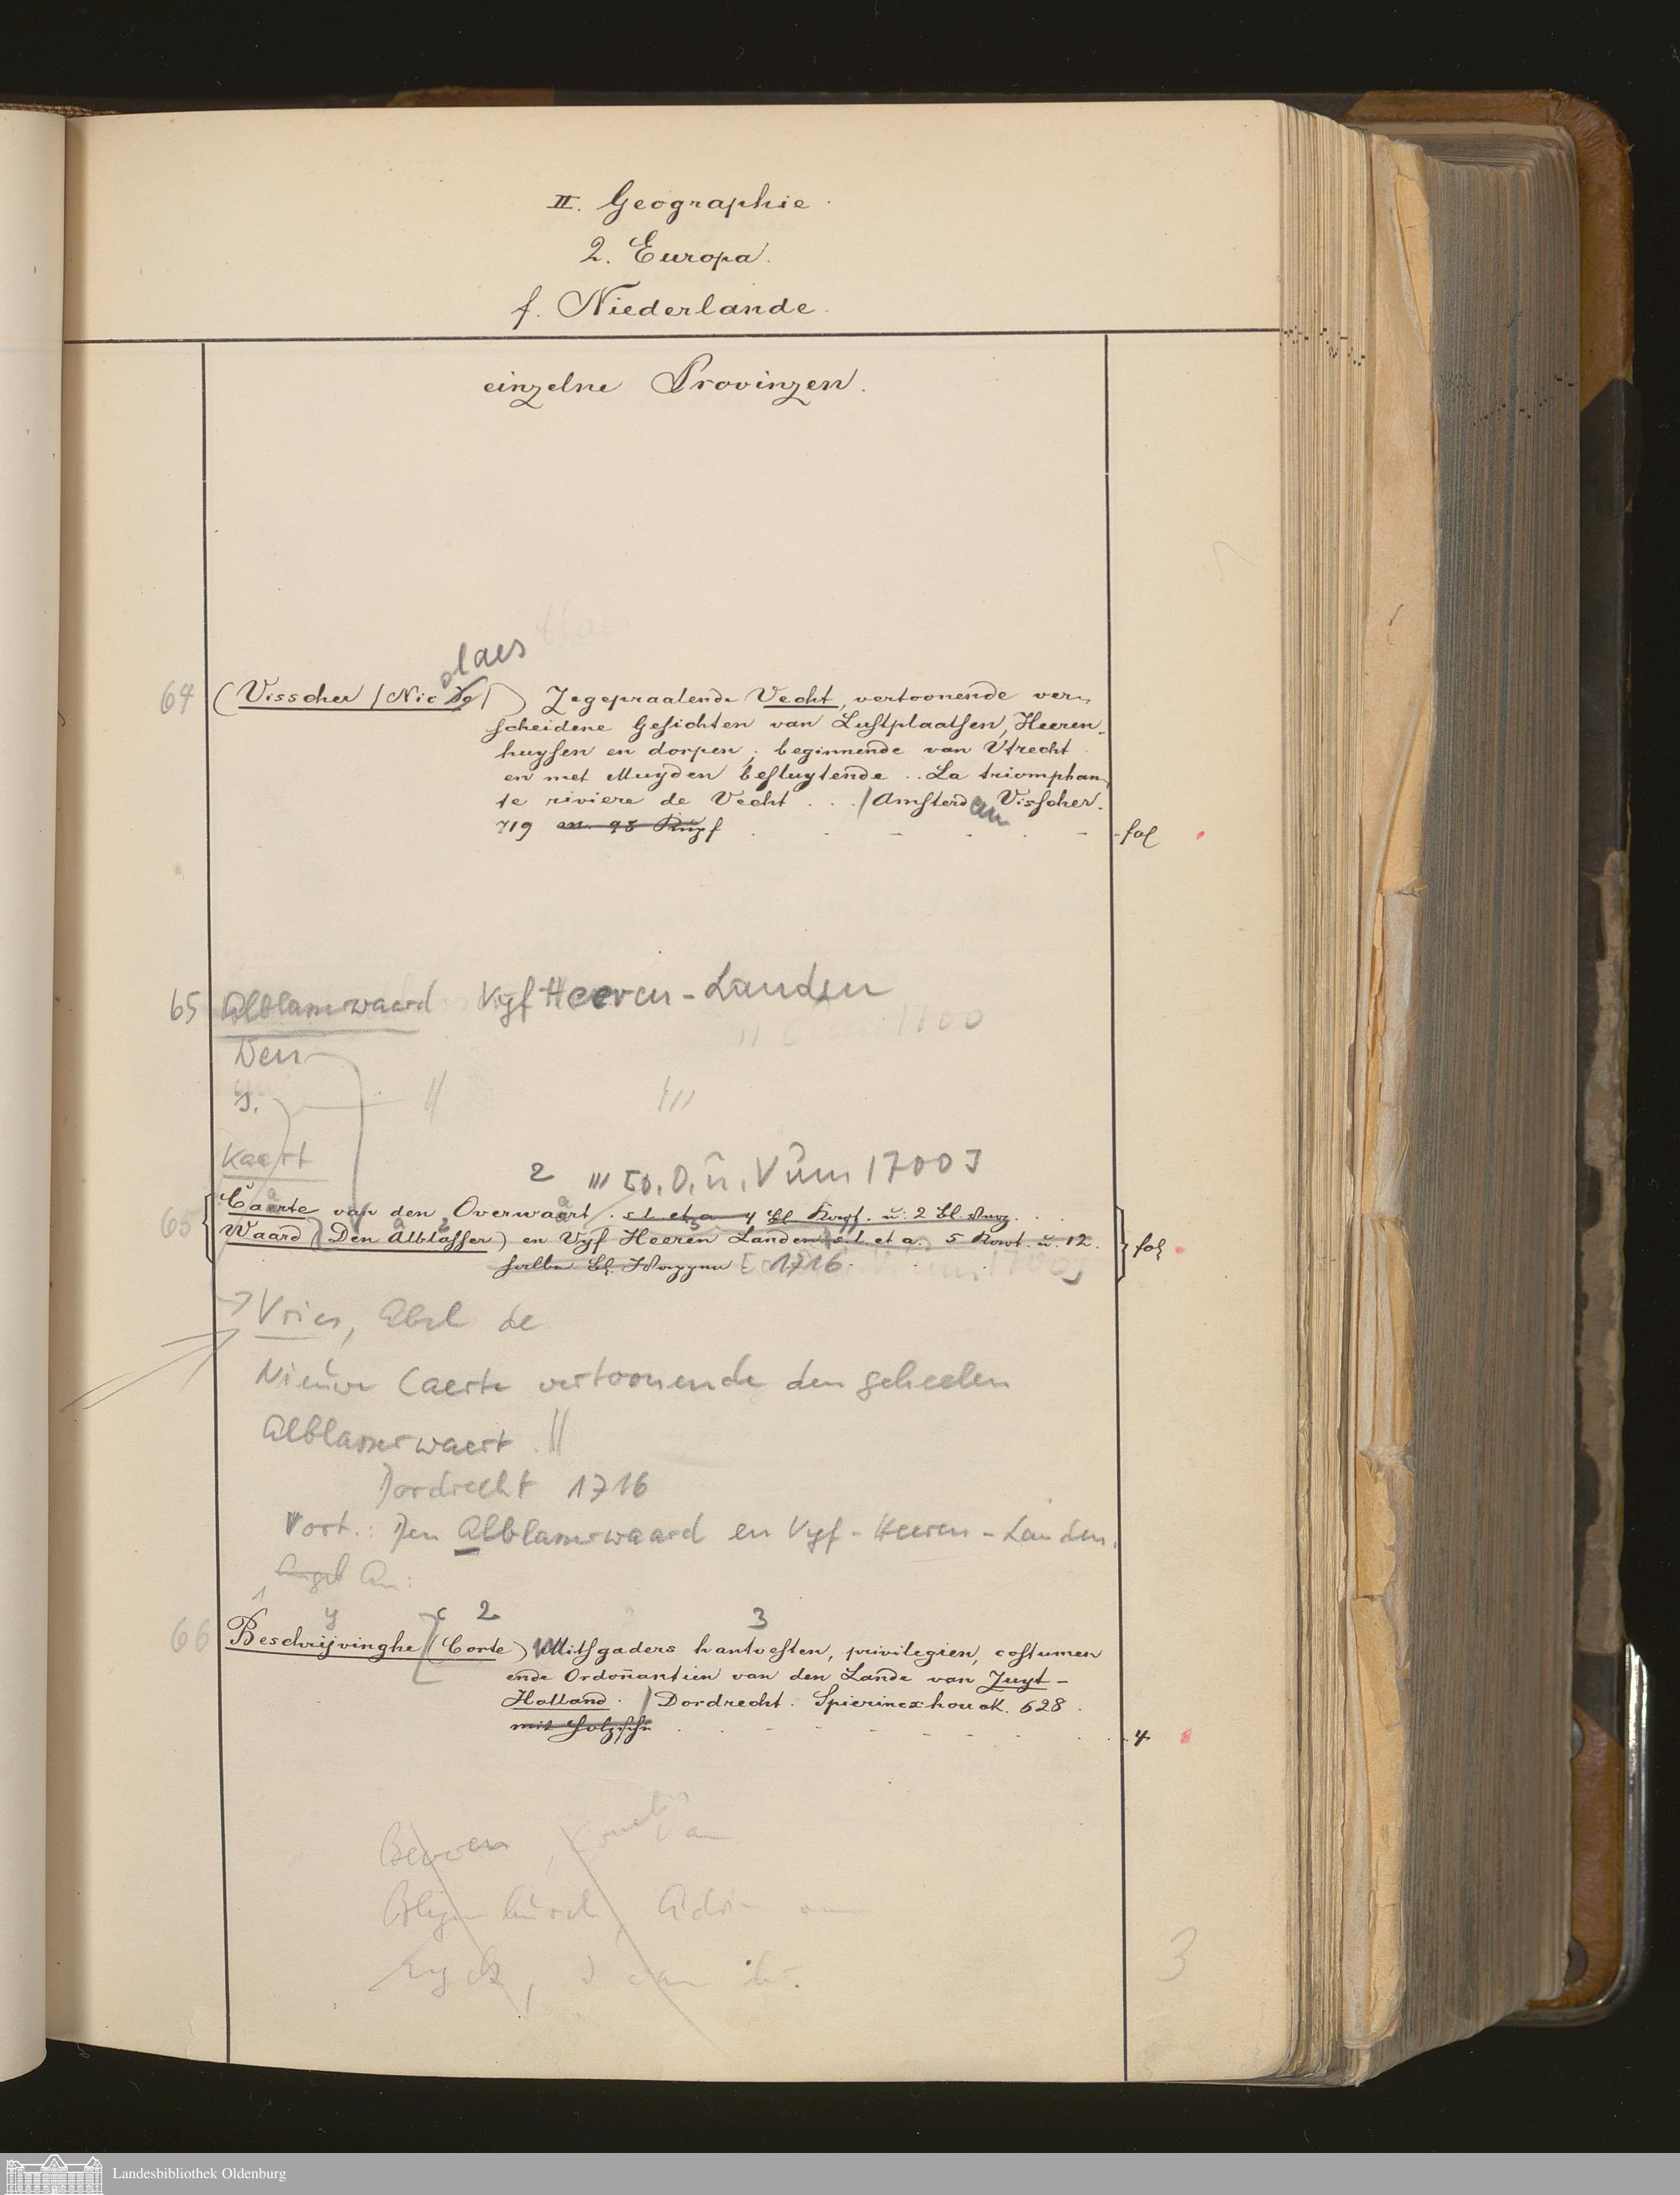 II. Geographie.
2. Europa.
f. Niederlande.
einzelne Provinzen.
olaes
64 (Visscher (Nic de)) Zegepraalende Vecht, vertoonende ver-
scheidene Gesichten van Lustplaatsen, Heeren-
huysen en dorpen; beginnende van Utrecht
en met Muyden besluytende .. La triomphan-
te riviere de Vecht ... / Amsterdam Visscher.
719 en 98 Kupf fol
65 Alblasserwaard Vyf Heeren-Landen
Den
Kaart
2 /// [o. O. u. V um 1700]
65 Caerte van den Overwaart. s l. et a 4 bl Kupf. u. 2 bl.
Waard (Den Alblasser) en Vyf Heeren Landen s. l. et a. 5 u. 12. fol
halbe bl. 1716.
→ Vries, Abel de
Nieuwe Caerte vertoonende den geheelen
Alblasserwaert. //
Dordrecht 1716
Vort.: Den Alblasserwaard en Vyf-Heeren-Landen.
An:
1 y c 2 3
66 Beschrijvinghe (Corte) Mitsgaders hantvesten, privilegien, costumen
ende Ordoñantien van den Lande van Zuyt-
Holland. / Dordrecht. Spierincxhouck. 628.
mit Holzschn 4
3
Landesbibliothek Oldenburg